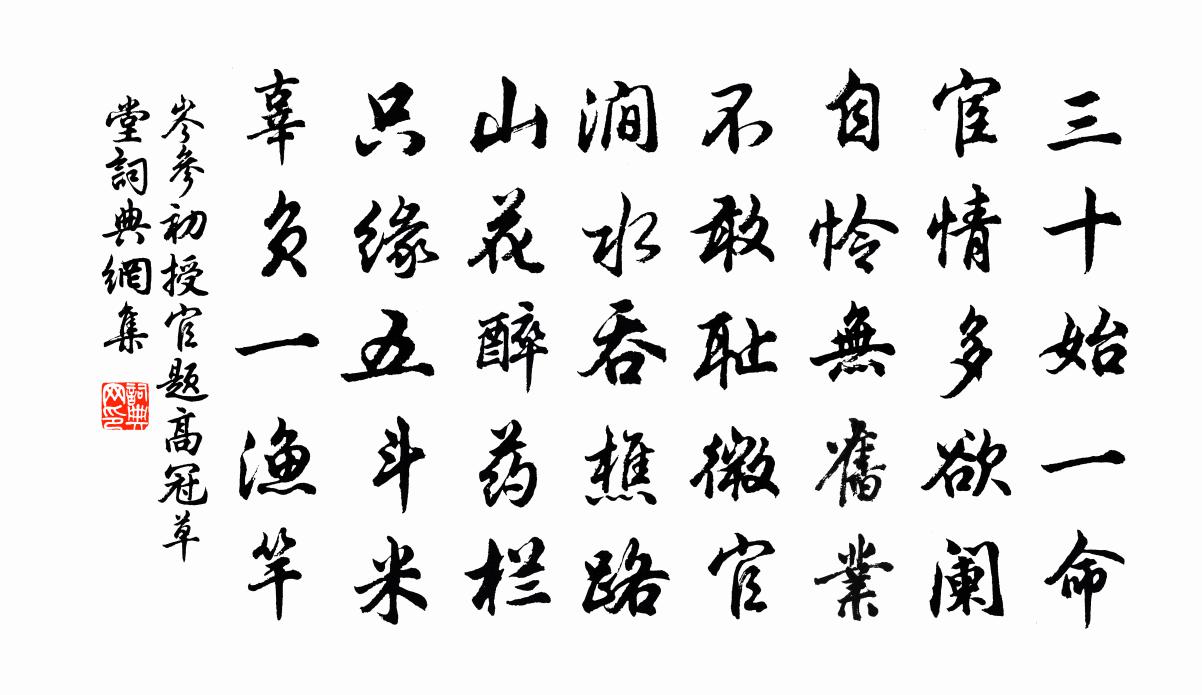 三十始一命
宦情多欲阑
自怜無舊業
不敢耻微官
澗水吞樵路
山花醉药栏
只缘五斗米
辜负一渔竿
岑參初授官题高冠草
堂詞典網集
詞典
网印